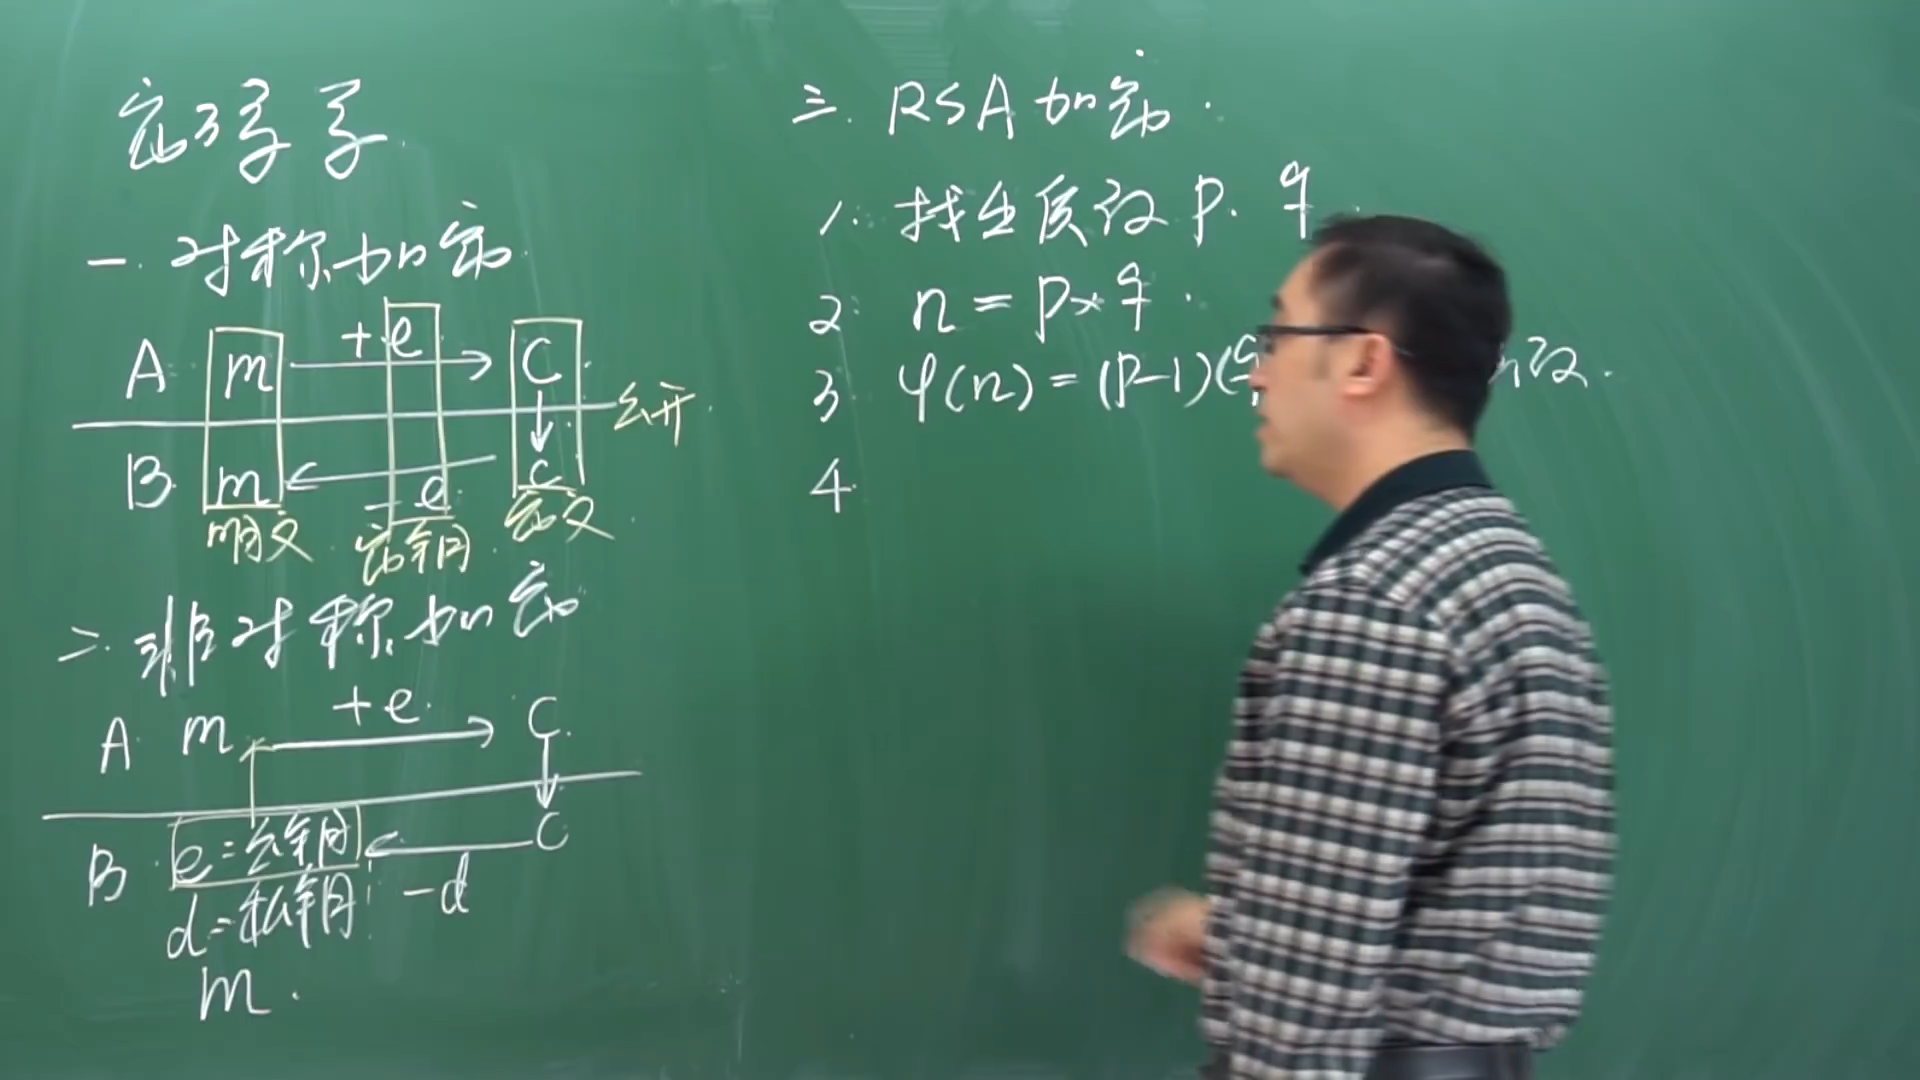 密码学
一. 对称加密
A m +e C
公开
B m -e C
明文 密钥 密文
二. 非对称加密
A m +e C
B e=公钥 C
d=私钥 -d
m
三. RSA加密
1. 找出质数 p. q
2. n=p×q
3 φ(n)=(p-1)(q 数
4